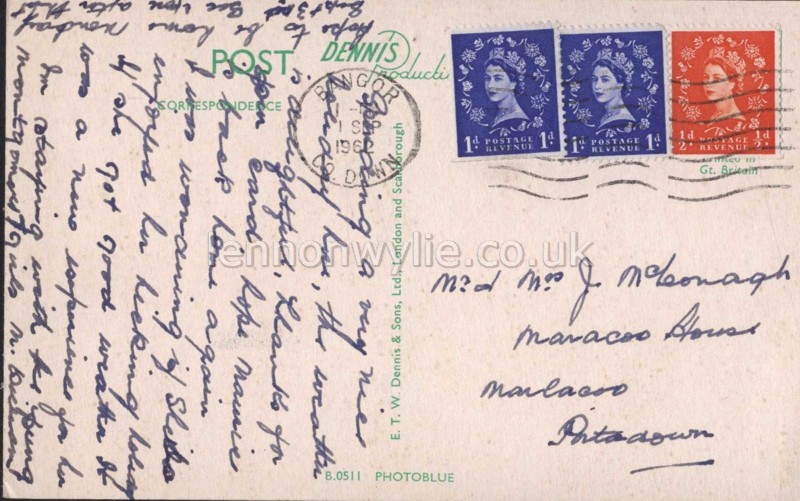 POST
CORRESPONDENCE
DENNIS
Producti
BANGOR
1 SEP
196
CO. DOWN
1d POSTAGE REVENUE 1d
1d POSTAGE REVENUE 1d
½d POSTAGE REVENUE ½d
Printed in
Gt. Britain
Spending a very nice
holiday here, the weather
is delightful, thanks for
your card & hope Maurice
is back home again
I was wondering if Sheila
enjoyed her hiking holiday
if she got good weather It
was a new experience for her
Im staying with the young
Montgomery girls
Hope to be home Monday
Sept 3rd See you after that
E. T. W. Dennis & Sons, Ltd., London and Scarborough
B.0511 PHOTOBLUE
Mr & Mrs J. McConagh
Maracoo House
Marlacoo
Portadown
lennonwylie.co.uk